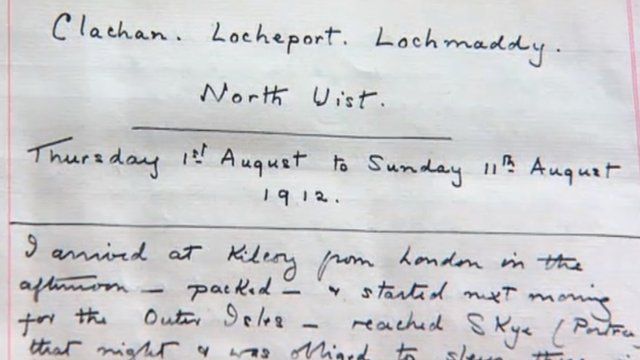 Clachan. Locheport. Lochmaddy.
North Uist.
Thursday 1st August to Sunday 11th August
1912.
I arrived at Kilcoy from London in the
afternoon — packed — & started next morning
for the Outer Isles — reached Skye (Portree
that night & was obliged to sleep